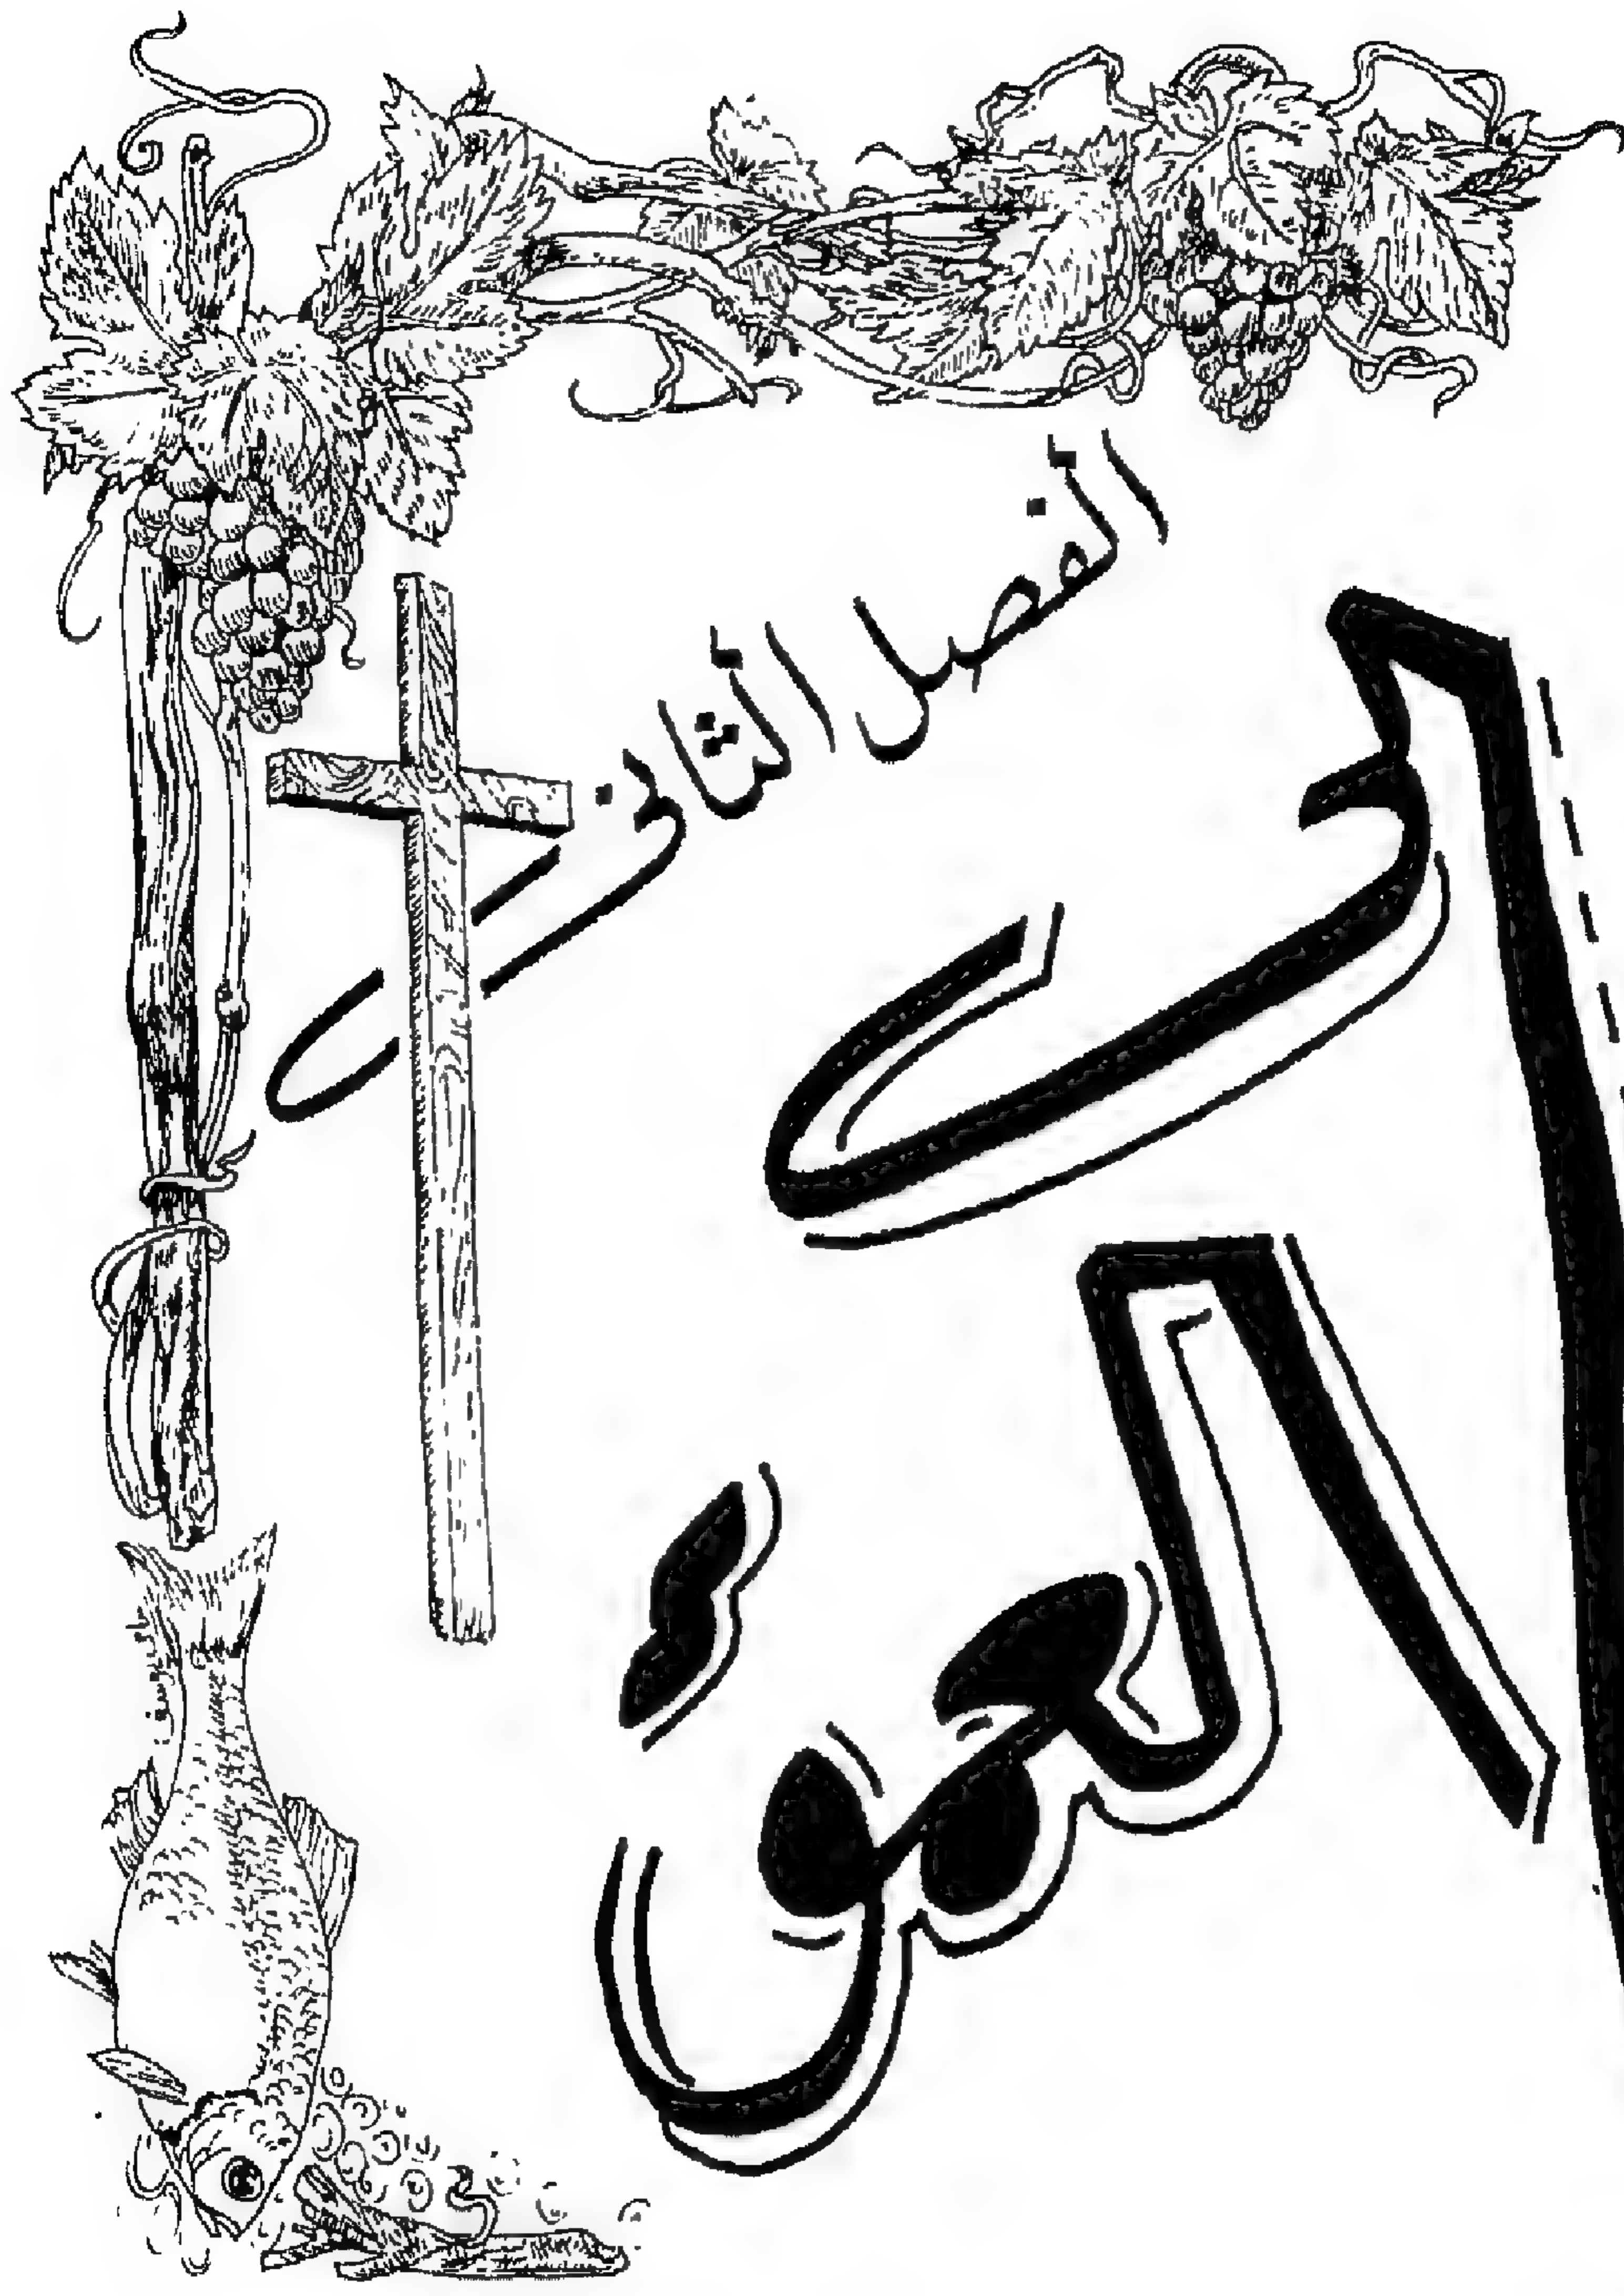 الفصل الثانى
إلى
العمق